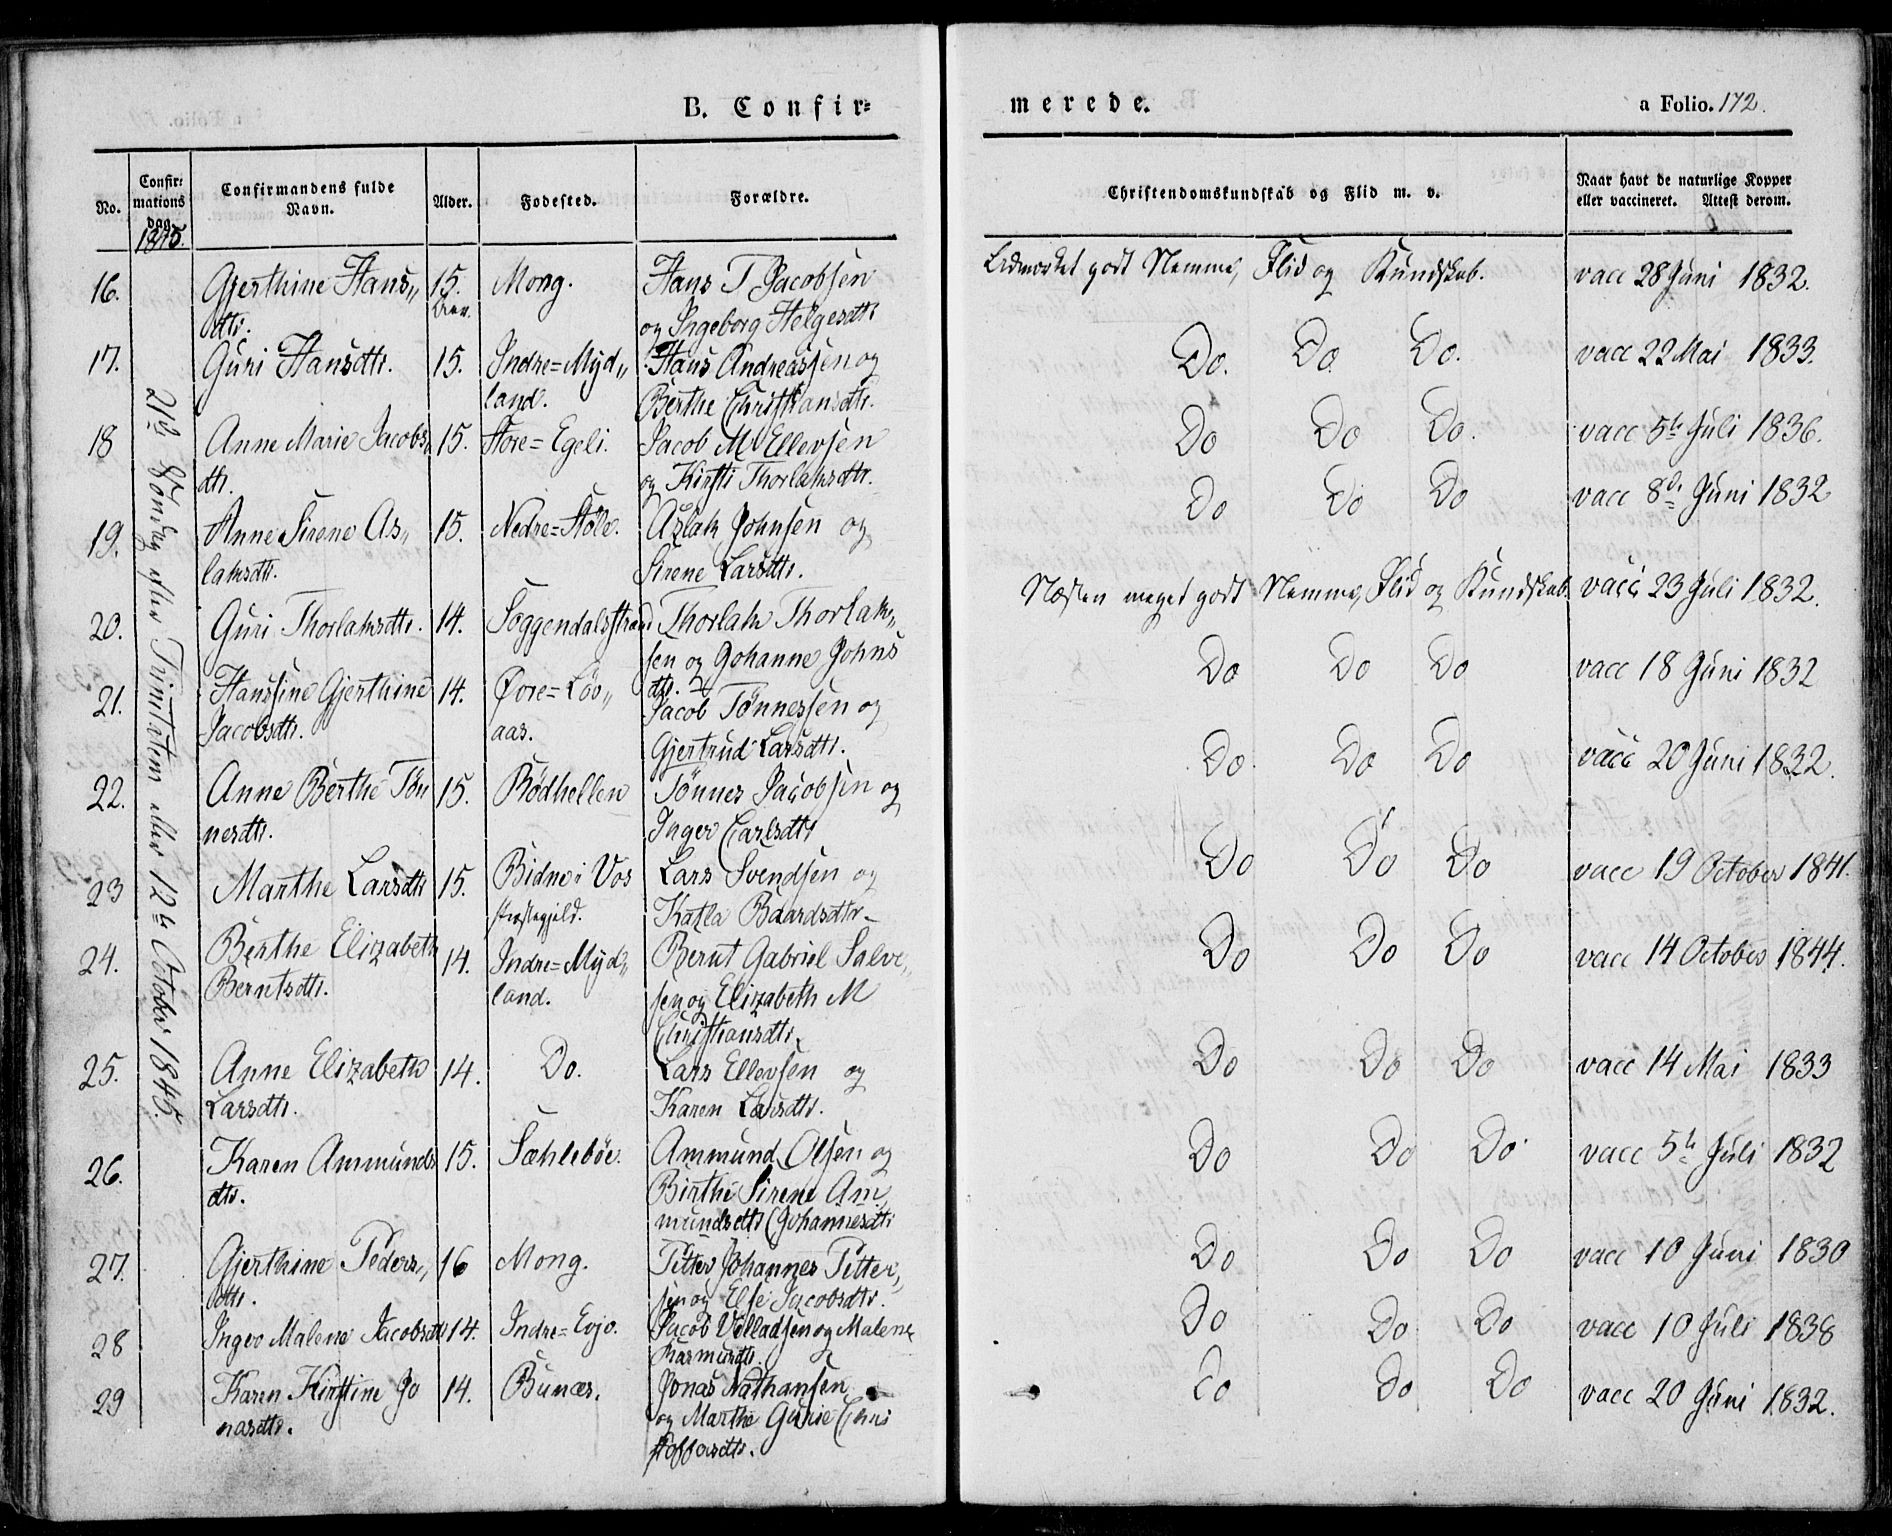 B. Confir=
merede.
a Folio. 172.
No.
Confir: mations dag.
Confirmandens fulde Navn.
Alder.
Fødested.
Forældre.
Christendomskundskab og Flid m. v.
Naar havt de naturlige Kopper eller vaccineret. Attest derom.
1845.
21de Söndag efter Trinitatem eller 12te October 1845.
16. Gjerthine Hans„ 15. Mong. Hans T Jacobsen
dtr. og Ingeborg Helgesdtr
godt Nemme, Flid og Kundskab. vacc 28 Juni 1832.
17. Guri Hansdtr. 15. Indre=Myd„ Hans Andreassen og
land. Berthe Christiansdtr.
Do. Do Do. vacc 22 Mai 1833.
18 Anne Marie Jacobs„ 15. Store=Egeli. Jacob M Ellevsen
dtr. og Kirsti Thorlaksdtr.
Do Do Do. vacc 5te Juli 1836.
19. Anne Sirene As„ 15. Nedre=Stöle. Aslak Johnsen og
laksdtr. Sirene Larsdtr.
Do Do Do vacc 8de Juni 1832
20. Guri Thorlaksdtr. 14. Soggendalsstrand Thorlak Thorlak„
sen og Johanne Johns
dtr.
Næsten meget godt Nemme, Flid og Kundskab vacc 23 Juli 1832.
21. Hansine Gjerthine 14. Övre=Löv„ Jacob Tønnessen og
Jacobsdtr. aas. Gjertrud Larsdtr.
Do Do Do vacc 18 Juni 1832
22. Anne Berthe Tön 15. Rödhellen Tönnes Jacobsen og
nesdtr. Inger Carlsdtr
Do. Do Do vacc 20 Juni 1832.
23 Marthe Larsdtr 15. Bidne i Vos Lars Svendsen og
Præstegjeld. Katla Baardsdtr
Do Do Do vacc 19 October 1841.
24. Berthe Elizabeth 14. Indre=Myd„ Bernt Gabriel Salve„
Berntsdtr. land. sen og Elizabeth M
Christiansdtr.
Do Do Do vacc 14 October 1844.
25. Anne Elizabeth 14. Do. Lars Ellevsen og
Larsdtr. Karen Larsdtr.
Do Do Do vacc 14 Mai 1833
26. Karen Ammunds 15. Sæhleböe. Ammund Olsen og
dtr. Birthe Sirene Am
mundsdtr (Johannesdtr
Do Do Do vacc 5te Juli 1832
27. Gjerthine Peders„ 16 Mong. Petter Johannes Petter„
dtr. sen og Else Jacobsdtr.
Do Do Do vacc 10 Juni 1830
28 Inger Malene Jacobsdtr 14. Indre=Evjo. Jacob Villadsen og Malene
Rasmusdtr.
Do Do Do vacc 10 Juli 1838
29 Karen Kirstine Jo 14. Bunæs. Jonas Nathansen
nasdtr. og Marthe Gurie Chri
stoffersdtr.
Do Do Do vacc 20 Juni 1832.